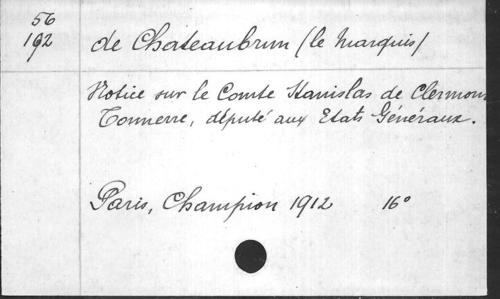 56
192
de Chateaubrun (le Marquis)
Notice sur le Comte Stanislas de Clermont
Tonnerre, député aux Etats Généraux.
Paris, Champion 1912 16°